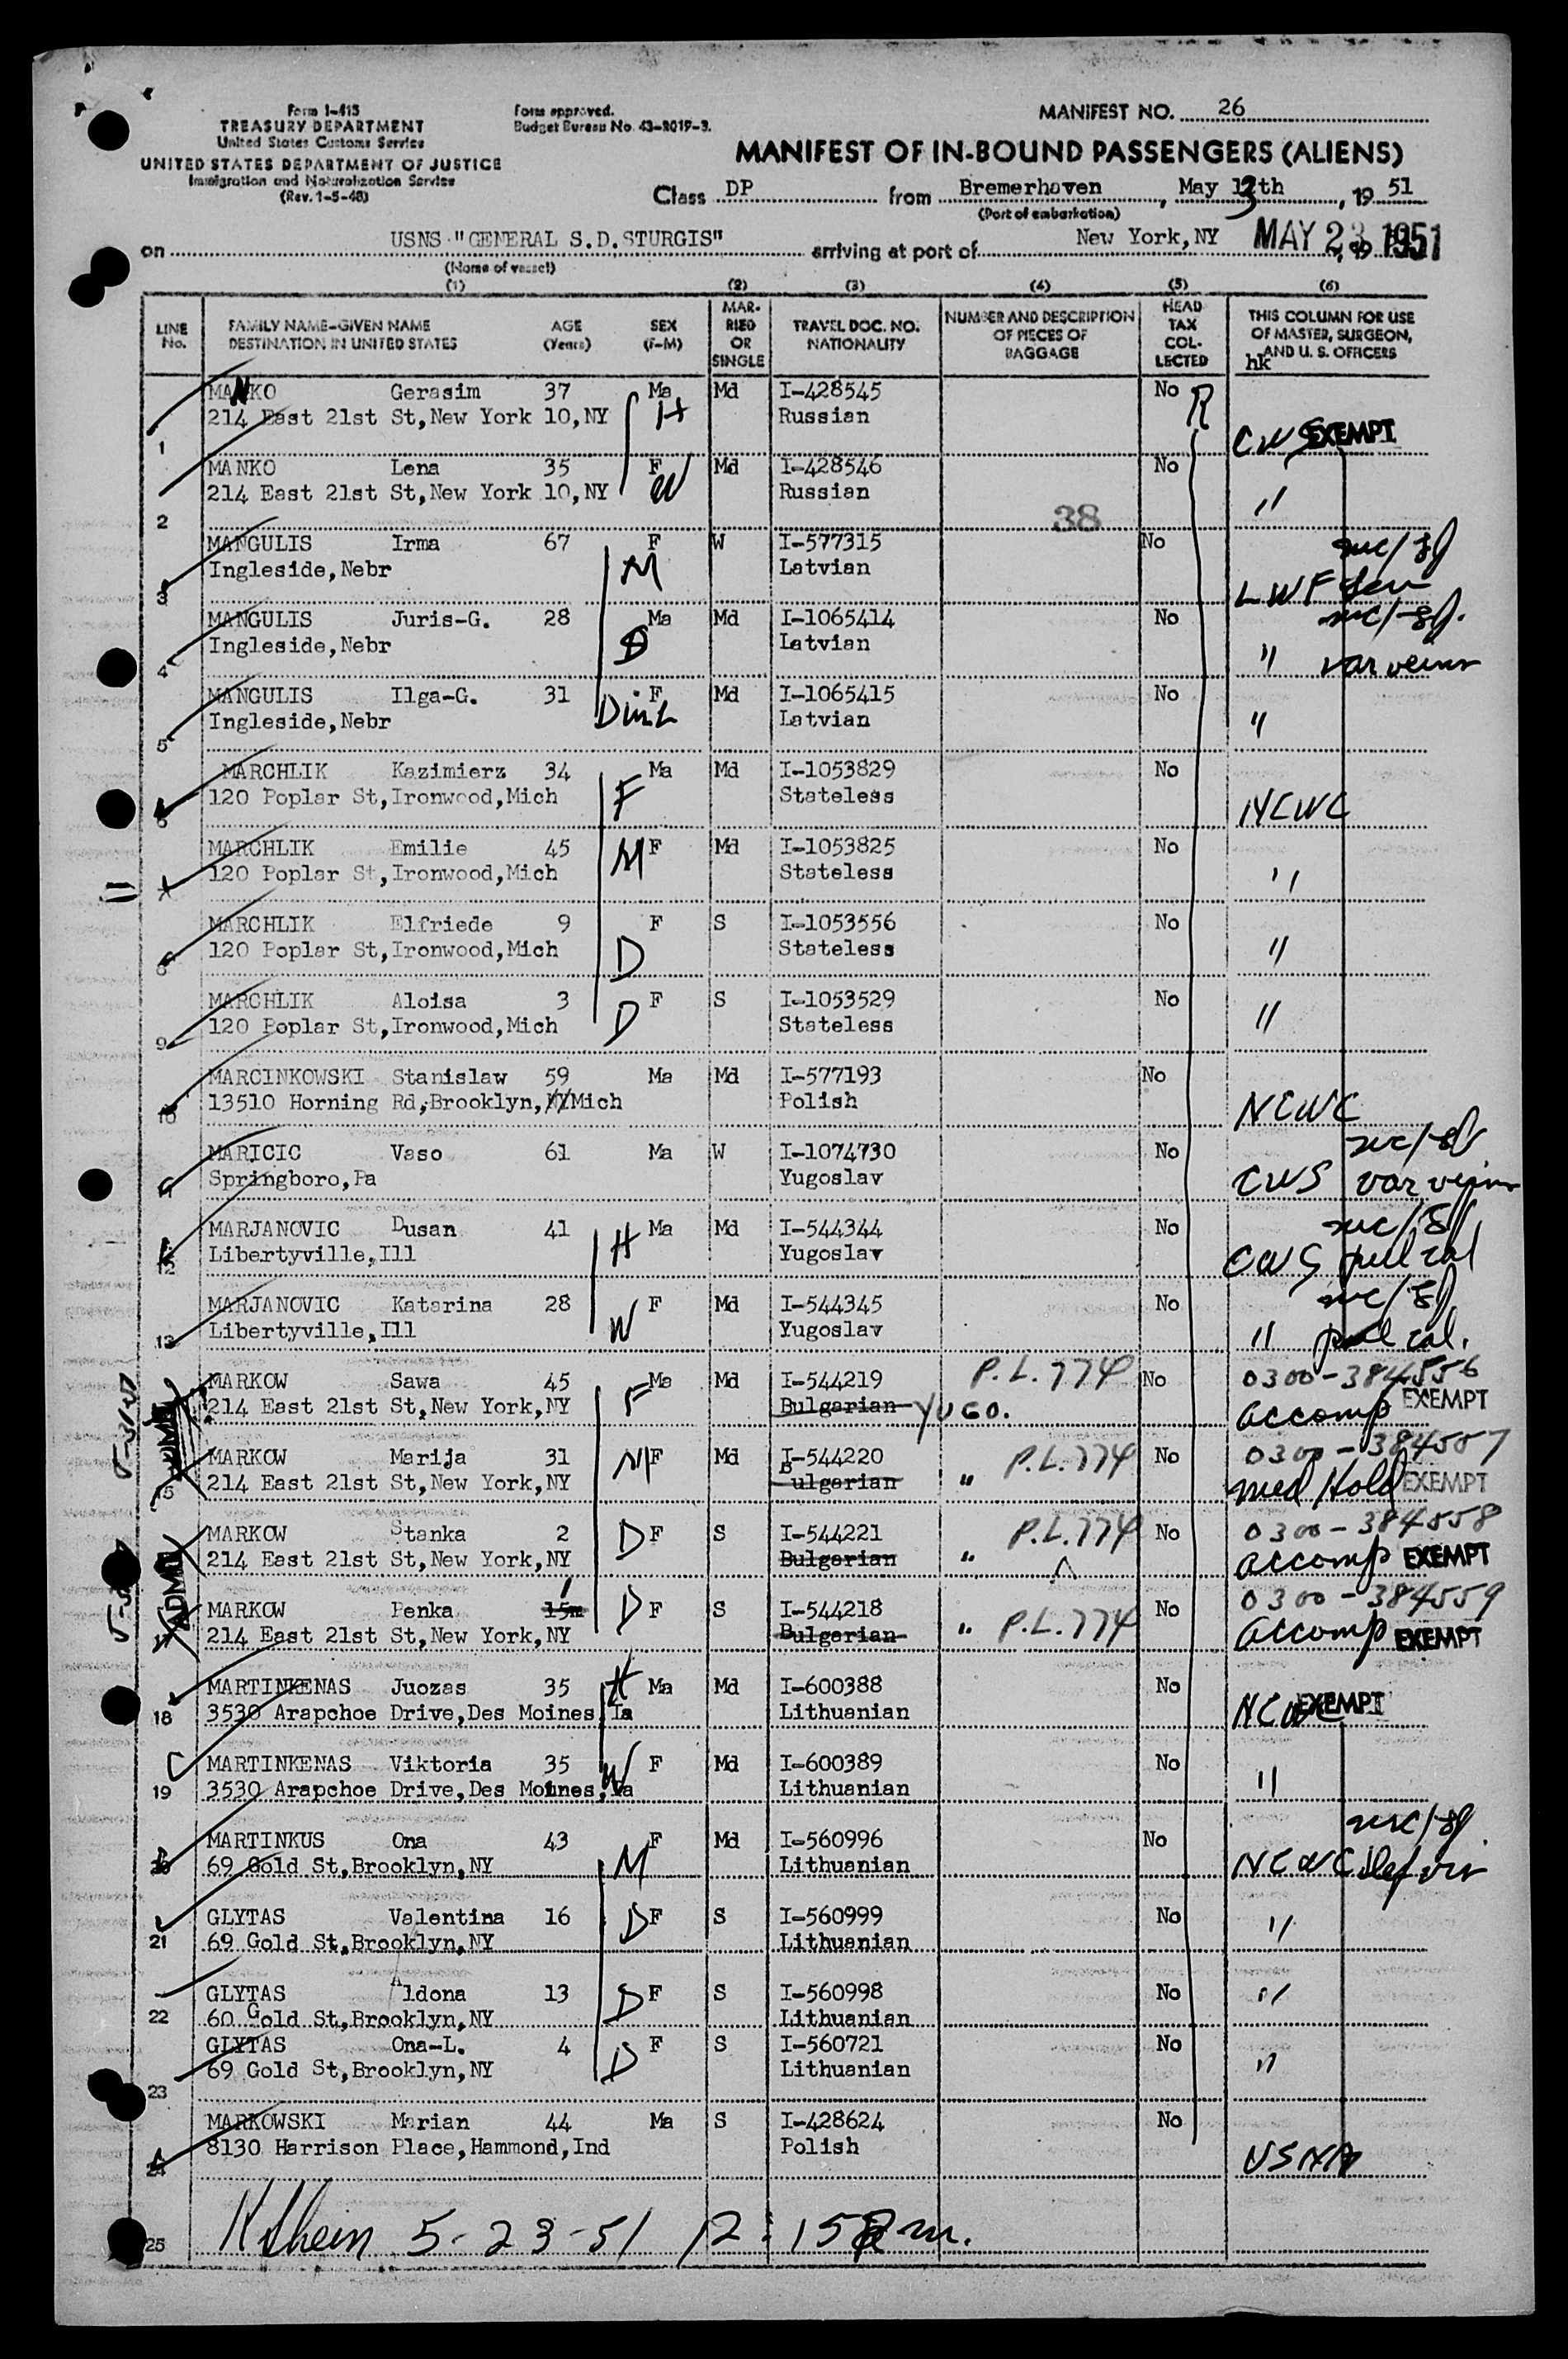 Form I-415
TREASURY DEPARTMENT
United States Customs Service
UNITED STATES DEPARTMENT OF JUSTICE
Immigration and Naturalization Service
(Rev. 1-5-48)
Form approved.
Budget Bureau No. 43-R019-3.
MANIFEST NO. 26
MANIFEST OF IN-BOUND PASSENGERS (ALIENS)
Class DP from Bremerhaven, May 13th, 19 51
(Port of embarkation)
on USNS "GENERAL S.D.STURGIS" arriving at port of New York, NY MAY 23 1951
(Name of vessel)
(1) (2) (3) (4) (5) (6)
LINE No. FAMILY NAME-GIVEN NAME DESTINATION IN UNITED STATES AGE (Years) SEX (F-M) MARRIED OR SINGLE TRAVEL DOC. NO. NATIONALITY NUMBER AND DESCRIPTION OF PIECES OF BAGGAGE HEAD TAX COLLECTED THIS COLUMN FOR USE OF MASTER, SURGEON, AND U. S. OFFICERS
hk
MANKO Gerasim 37 Ma Md I-428545 No R
214 East 21st St,New York 10,NY H Russian
1 CWS EXEMPT
MANKO Lena 35 F Md I-428546 No
214 East 21st St,New York 10,NY W Russian "
2 38
MANGULIS Irma 67 F W I-577315 No
Ingleside,Nebr M Latvian
3 LWF
MANGULIS Juris-G. 28 Ma Md I-1065414 No
Ingleside,Nebr Latvian
4 " var veins
MANGULIS Ilga-G. 31 F Md I-1065415 No
Ingleside,Nebr DinL Latvian "
5
MARCHLIK Kazimierz 34 Ma Md I-1053829 No
120 Poplar St,Ironwood,Mich F Stateless
6 NCWC
MARCHLIK Emilie 45 M F Md I-1053825 No
120 Poplar St,Ironwood,Mich Stateless "
MARCHLIK Elfriede 9 F S I-1053556 No
120 Poplar St,Ironwood,Mich D Stateless "
8
MARCHLIK Aloisa 3 F S I-1053529 No
120 Poplar St,Ironwood,Mich D Stateless "
9
MARCINKOWSKI Stanislaw 59 Ma Md I-577193 No
13510 Horning Rd,Brooklyn,NY Mich Polish
10 NCWC
MARICIC Vaso 61 Ma W I-1074730 No
Springboro,Pa Yugoslav
11 CWS var veins
MARJANOVIC Dusan 41 H Ma Md I-544344 No
Libertyville,Ill Yugoslav
12 CWS pul cal
MARJANOVIC Katarina 28 F Md I-544345 No
Libertyville,Ill W Yugoslav
13 " pul cal.
MARKOW Sawa 45 F Ma Md I-544219 P.L. 774 No 0300-384556
214 East 21st St,New York,NY Bulgarian YUGO. accomp EXEMPT
MARKOW Marija 31 M F Md I-544220 P.L. 774 No 0300-384557
15 214 East 21st St,New York,NY Bulgarian " med Hold EXEMPT
MARKOW Stanka 2 D F S I-544221 P.L. 774 No 0300-384558
214 East 21st St,New York,NY Bulgarian " accomp EXEMPT
MARKOW Penka 15m 1 D F S I-544218 P.L. 774 No 0300-384559
214 East 21st St,New York,NY Bulgarian " accomp EXEMPT
MARTINKENAS Juozas 35 H Ma Md I-600388 No
18 3530 Arapchoe Drive,Des Moines,Ia Lithuanian NCWC EXEMPT
MARTINKENAS Viktoria 35 W F Md I-600389 No
19 3530 Arapchoe Drive,Des Moines,Ia Lithuanian "
MARTINKUS Ona 43 F Md I-560996 No
20 69 Gold St,Brooklyn,NY M Lithuanian NCWC
GLYTAS Valentina 16 D F S I-560999 No
21 69 Gold St,Brooklyn,NY Lithuanian "
GLYTAS Aldona 13 D F S I-560998 No
22 60 Gold St,Brooklyn,NY Lithuanian "
GLYTAS Ona-L. 4 D F S I-560721 No
69 Gold St,Brooklyn,NY Lithuanian "
23
MARKOWSKI Marian 44 Ma S I-428624 No
8130 Harrison Place,Hammond,Ind Polish
24 USNA
25 5-23-51 12:15 p m.